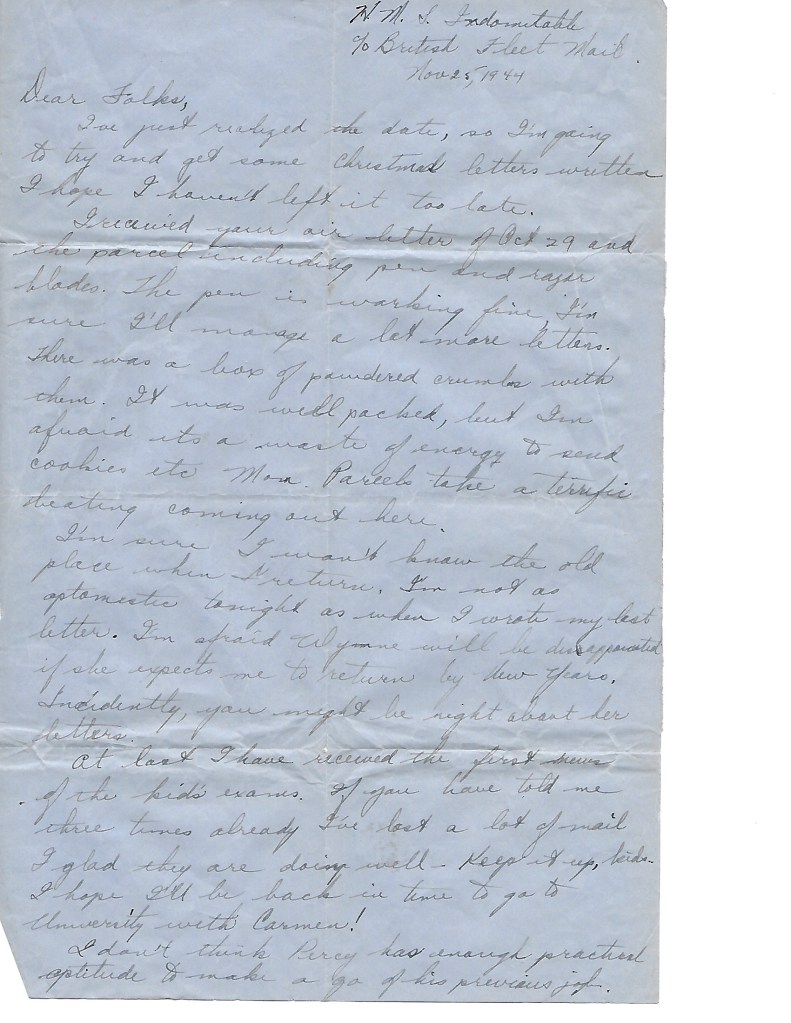 H. M. S. Indomitable
c/o British Fleet Mail.
Nov 25, 1944
Dear Folks,
I've just realized the date, so I'm going
to try and get some Christmas letters written
I hope I haven't left it too late.
I received your air letter of Oct 29 and
the parcel including pen and razor
blades. The pen is working fine, I'm
sure I'll manage a lot more letters.
There was a box of powdered crumbs with
them. It was well packed, but I'm
afraid its a waste of energy to send
cookies etc Mom. Parcels take a terrific
beating coming out here.
I'm sure I won't know the old
place when I return. I'm not as
optomestic tonight as when I wrote my last
letter. I'm afraid Wynne will be dissappointed
if she expects me to return by New Years.
Incidently, you might be right about her
letters.
At last I have received the first news
of the kids' exams. If you have told me
three times already I've lost a lot of mail
I glad they are doing well - Keep it up, kids -
I hope I'll be back in time to go to
University with Carmen!
I don't think Percy has enough practical
aptitude to make a go of his previous job.